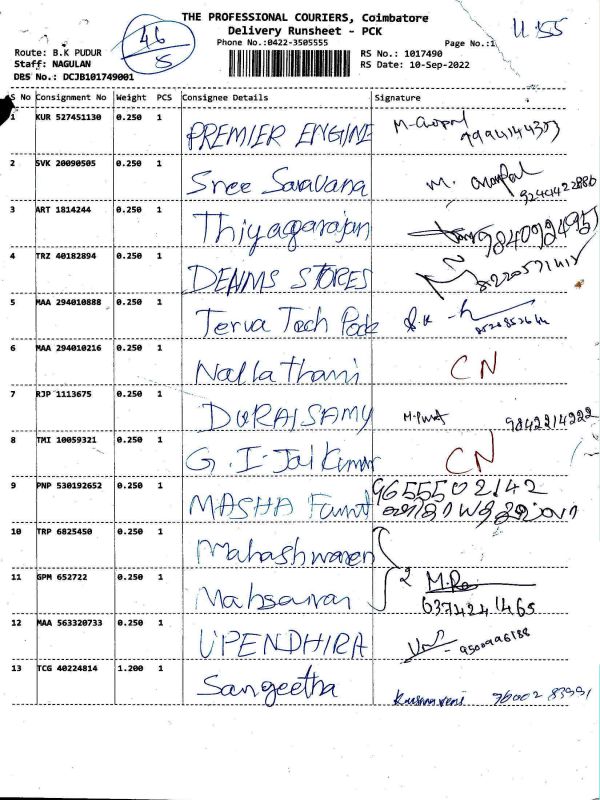 THE PROFESSIONAL COURIERS, Coimbatore
Delivery Runsheet - PCK
Phone No.:0422-3505555
Page No.:1
Route: B.K PUDUR
Staff: NAGULAN
DRS No.: DCJB101749001
RS No.: 1017490
RS Date: 10-Sep-2022
46
S
U 155
S No Consignment No Weight PCS Consignee Details Signature
1 KUR 527451130 0.250 1 PREMIER ENGINE M-Gopal 7994144353
2 SVK 20090505 0.250 1 Sree Saravana M. 9244422886
3 ART 1814244 0.250 1 Thiyagarajan
4 TRZ 40182894 0.250 1 DENMS STORES
5 MAA 294010888 0.250 1 Terva Tech
6 MAA 294010216 0.250 1 Nallathami CN
7 RJP 1113675 0.250 1 DURAISAMY 9842214222
8 TMI 10059321 0.250 1 G. I- Jai Kumar CN
9 PNP 530192652 0.250 1 MASHA 9655502142
10 TRP 6825450 0.250 1 Mahashwaren
11 GPM 652722 0.250 1 2 6374241465
12 MAA 563320733 0.250 1 UPENDHIRA 9500996188
13 TCG 40224814 1.200 1 Sangeetha 96002 83991